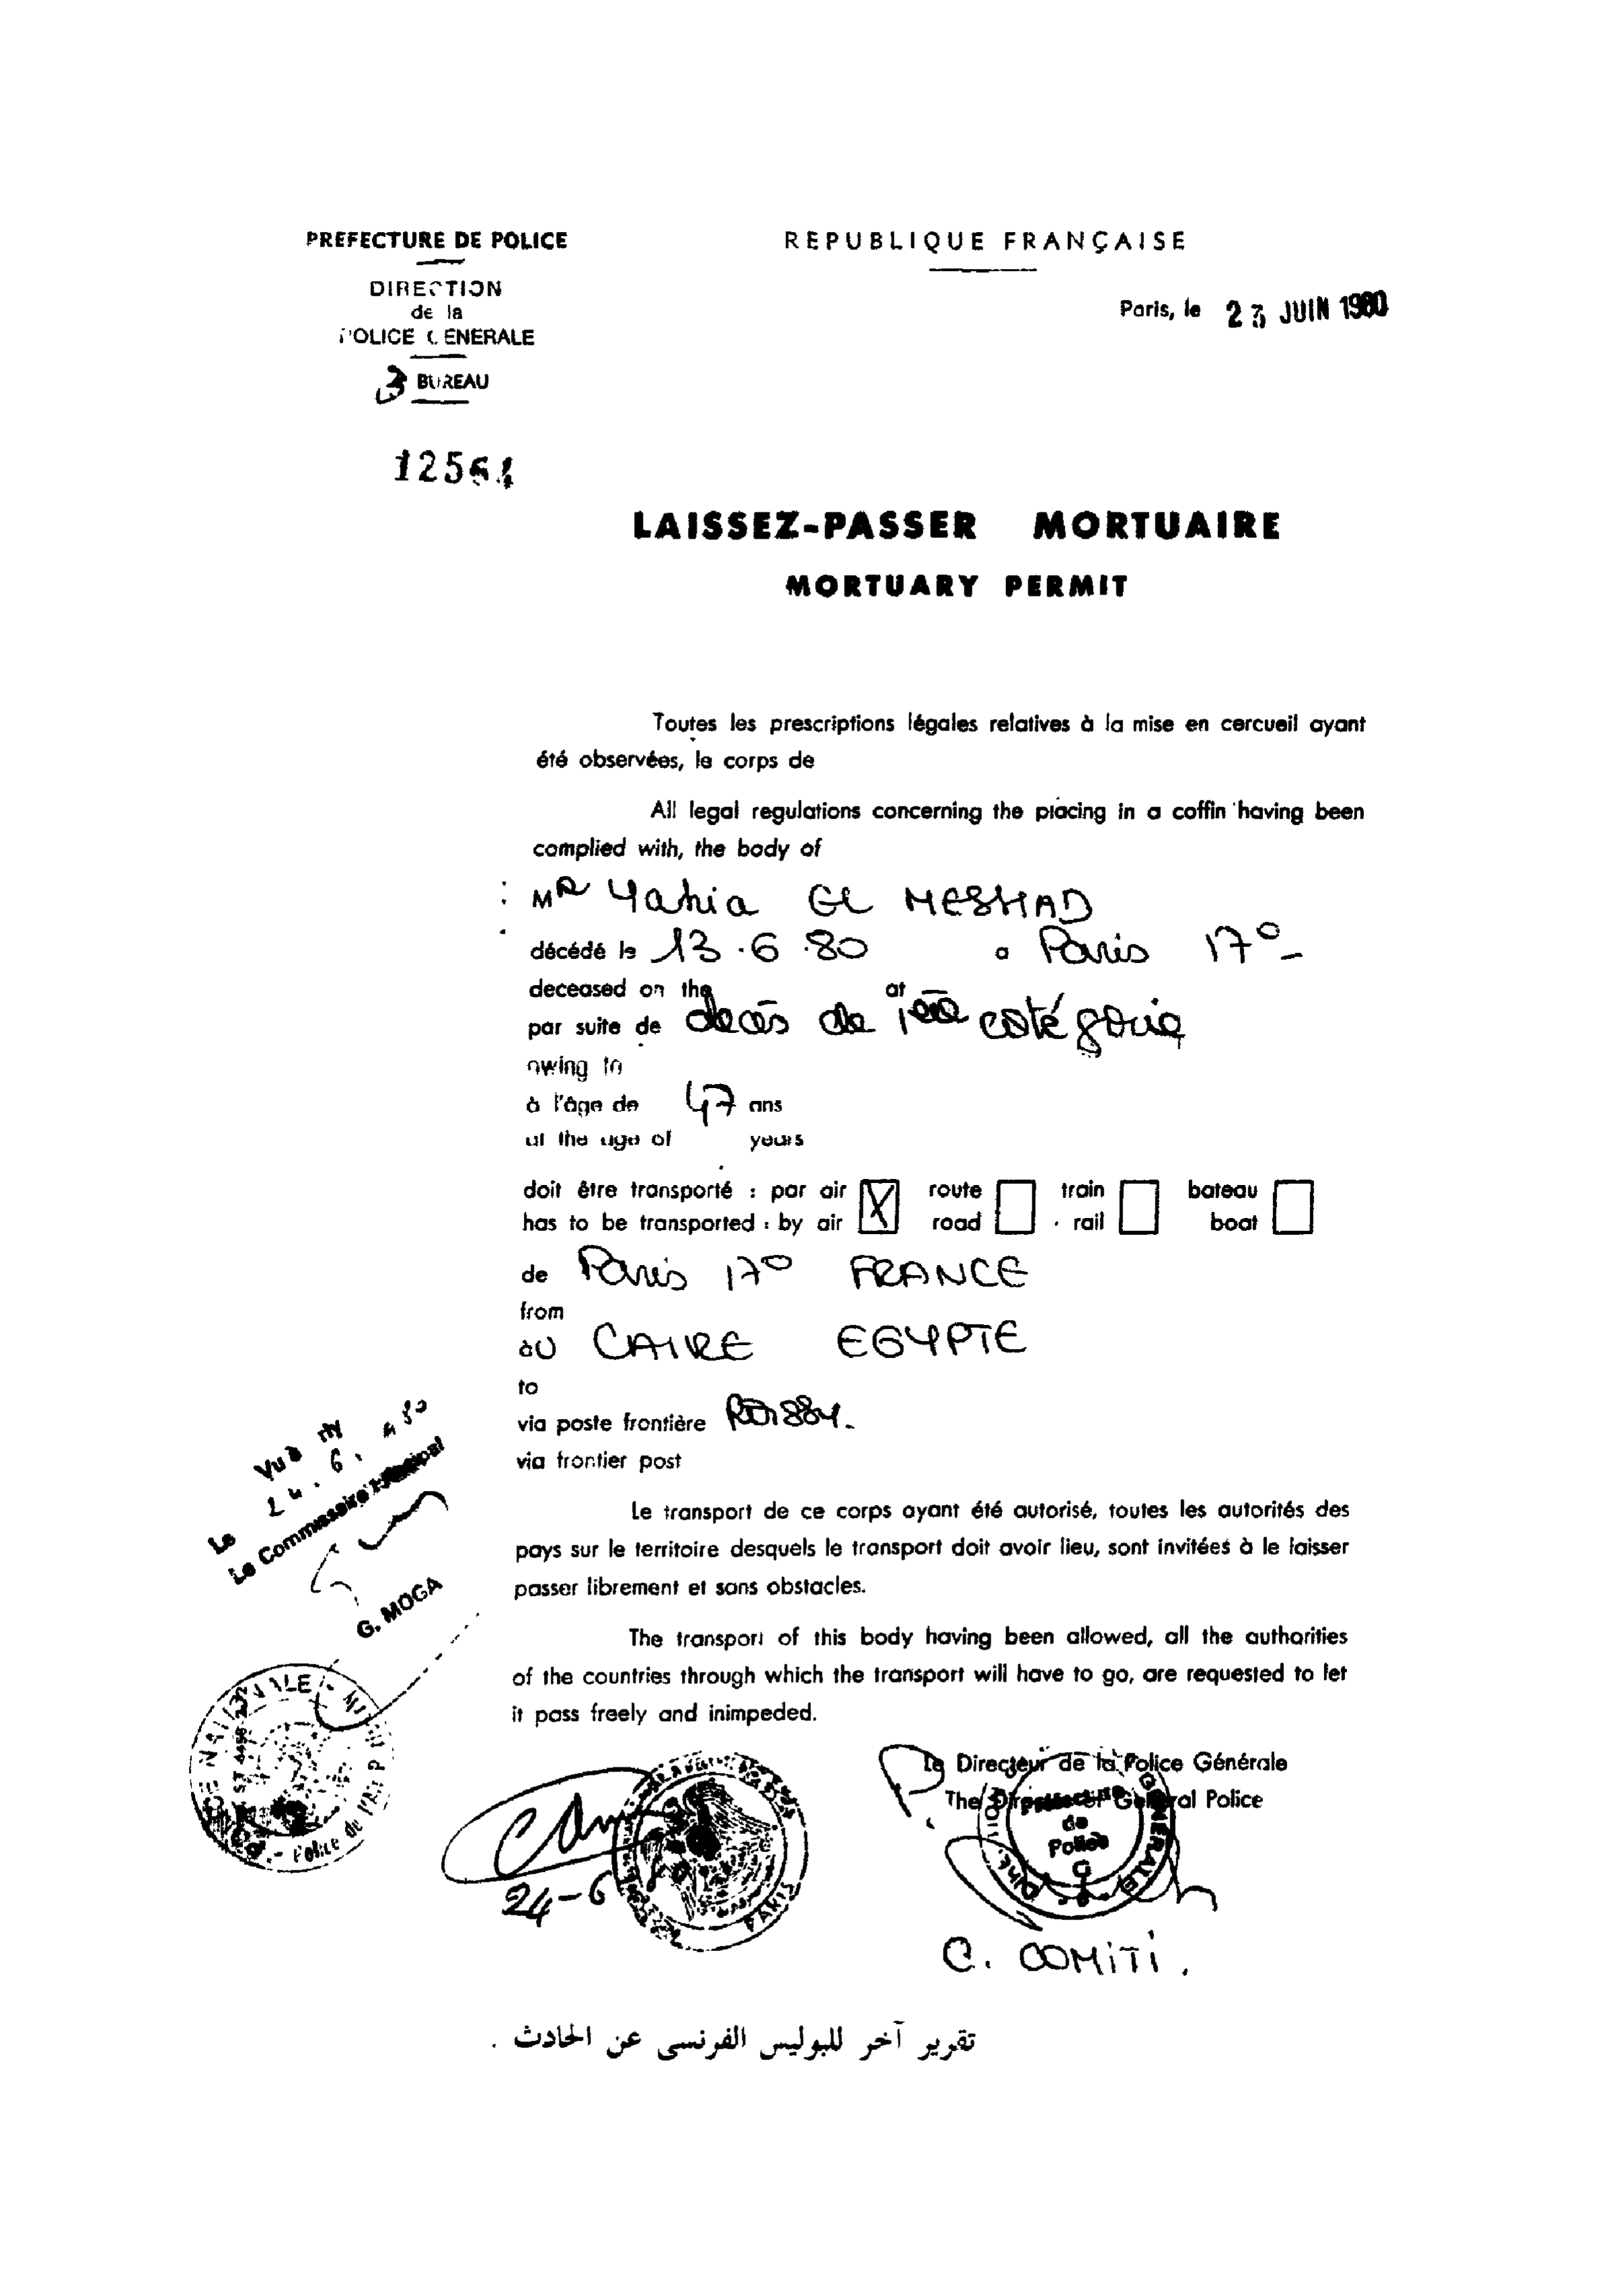 PREFECTURE DE POLICE
DIRECTION
de la
POLICE GENERALE
3 BUREAU
12564
REPUBLIQUE FRANÇAISE
Paris, le 23 JUIN 1980
LAISSEZ-PASSER MORTUAIRE
MORTUARY PERMIT
Toutes les prescriptions légales relatives à la mise en cercueil ayant
été observées, le corps de
All legal regulations concerning the placing in a coffin having been
complied with, the body of
MR Yahia EL MESHAD
décédé le 13.6.80 a Paris 17°
deceased on the at
par suite de decès de 1ère catégorie
owing to
à l'âge de 47 ans
at the age of years
doit être transporté : par air X route train bateau
has to be transported : by air road rail boat
de Paris 17° FRANCE
from
àU CAIRE EGYPTE
to
via poste frontière
via frontier post
Le transport de ce corps ayant été autorisé, toutes les autorités des
pays sur le territoire desquels le transport doit avoir lieu, sont invitées à le laisser
passer librement et sans obstacles.
The transport of this body having been allowed, all the authorities
of the countries through which the transport will have to go, are requested to let
it pass freely and inimpeded.
Vu à
Le 24.6.
Le Commissaire Principal
G. MOGA
Police de
24-6
PARIS
Le Directeur de la Police Générale
The Director General Police
Préfecture
de
Police
GÉNÉRALE
C. COMITI.
تقرير آخر للبوليس الفرنسى عن الحادث .